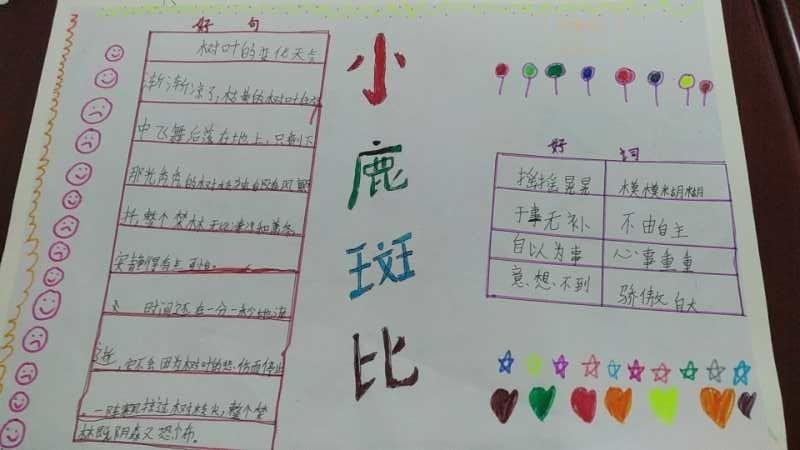 好句
树叶的变化天气
渐渐凉了，枯黄的树叶在
中飞舞后落在地上，只剩下
那光秃秃的树枝
整个
安静得有点可怕。
时间还在一分一秒地流
逝，它不会因为树叶的悲伤而停止
树枝尖，整个梦
林既阴森又恐怖。
小
鹿
斑
比
好词
摇摇晃晃 模模糊糊
于事无补 不由自主
自以为事 心事重重
意想不到 骄傲自大